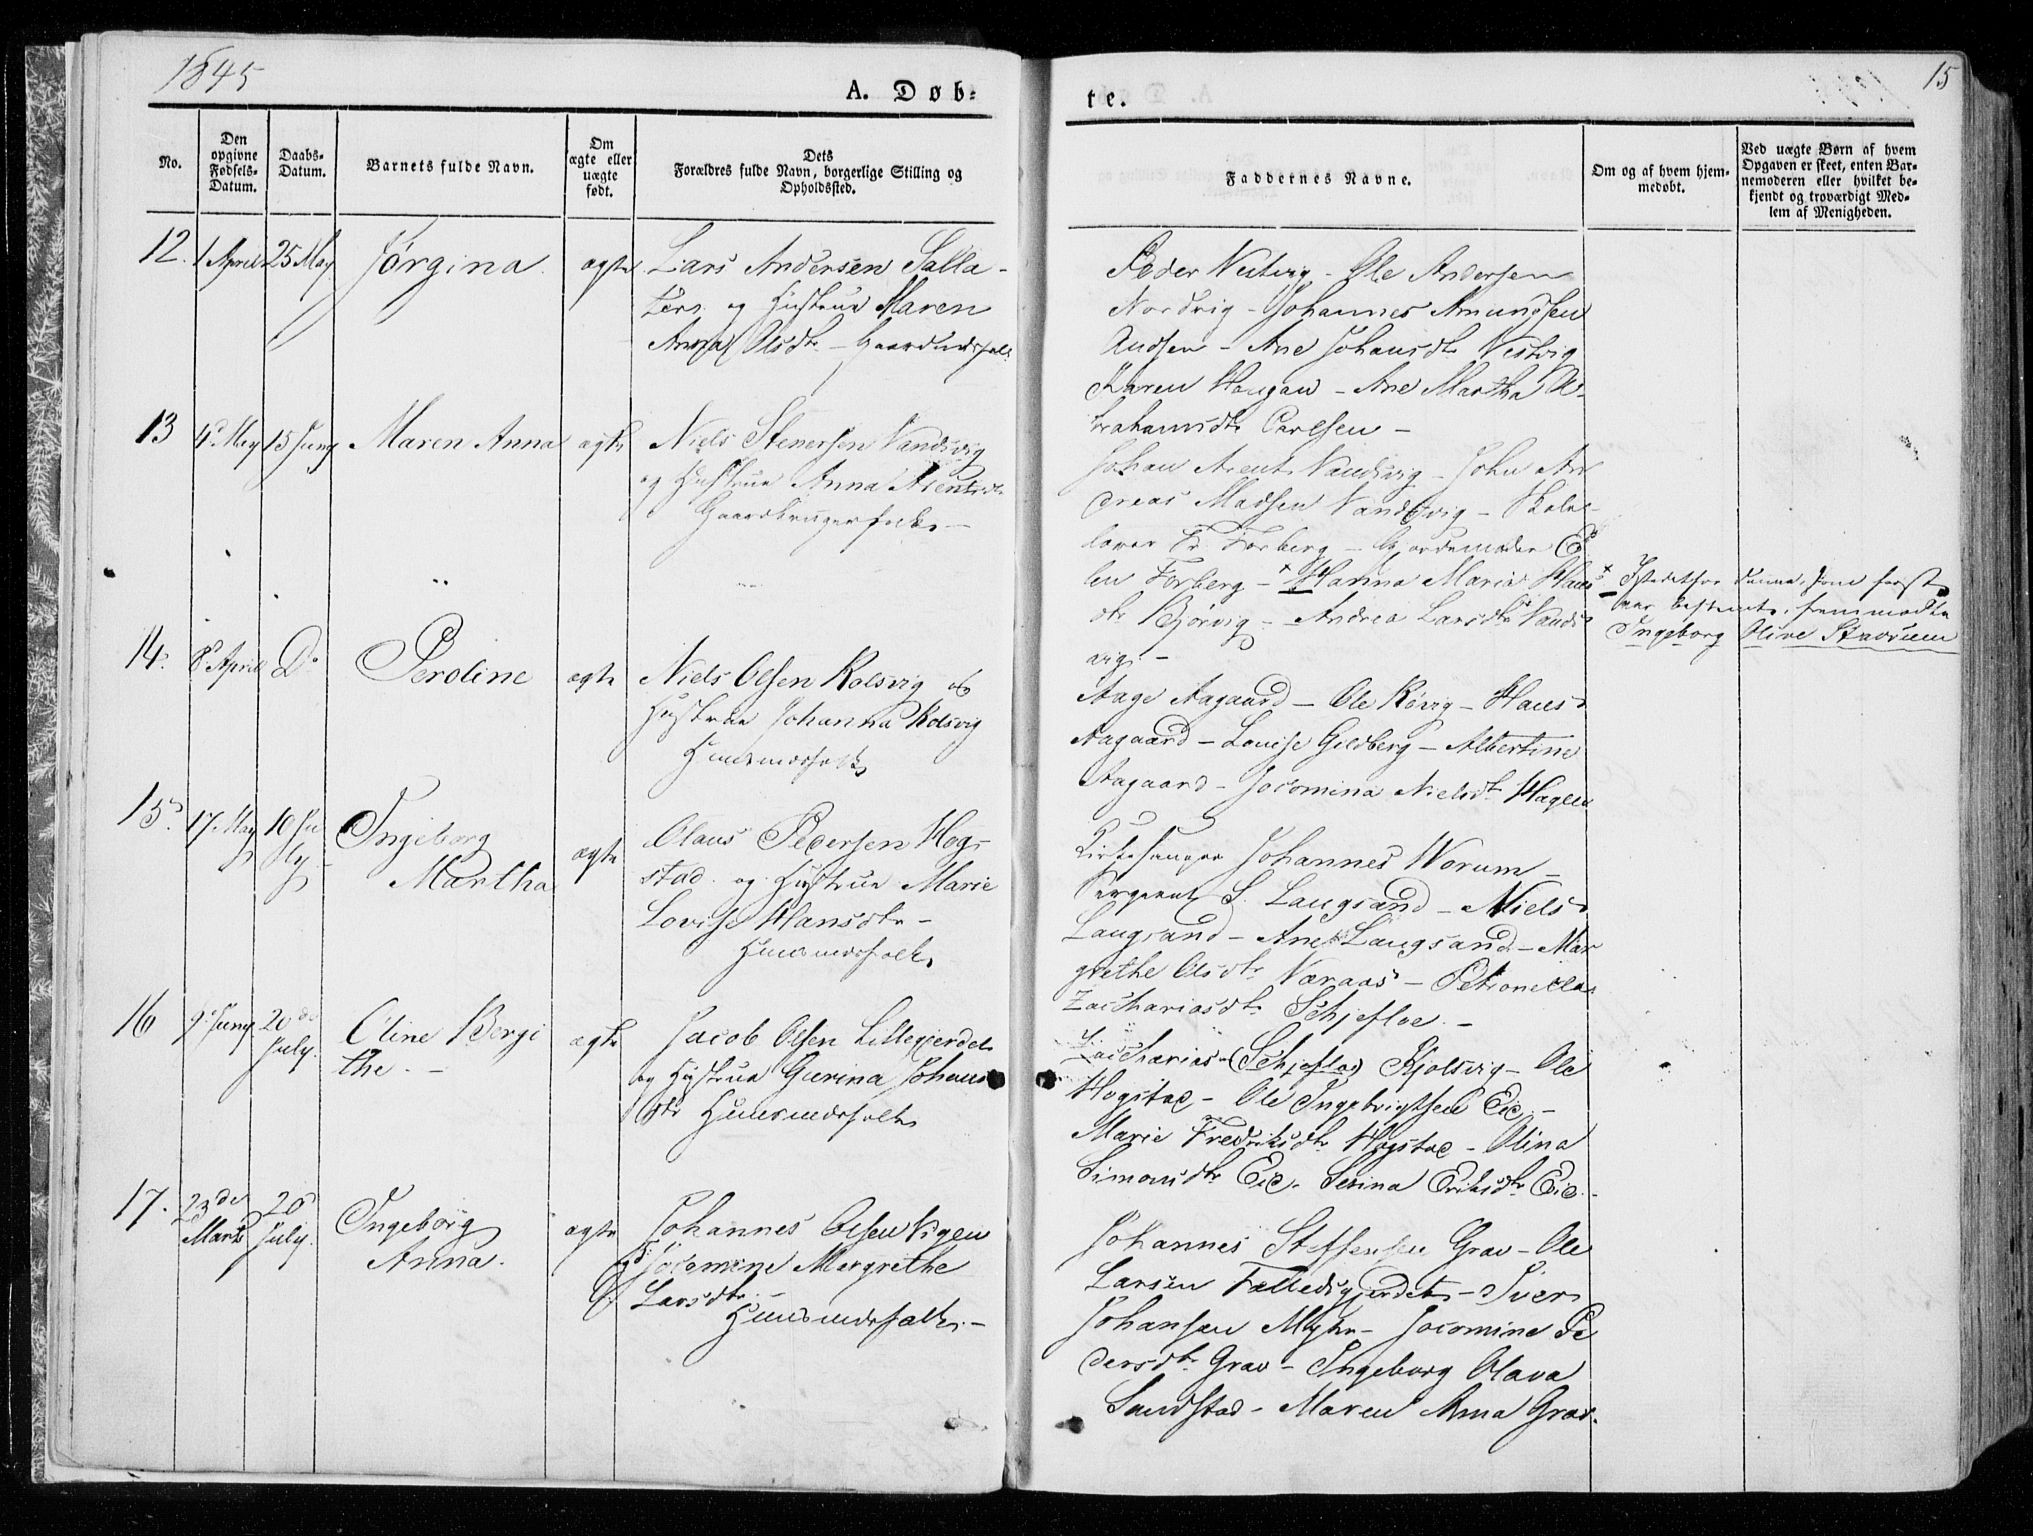 1845
15
A. Døb-
te.
No.
Den opgivne Fødsels-Datum.
Daabs-Datum.
Barnets fulde Navn.
Om ægte eller uægte født.
Dets Forældres fulde Navn, borgerlige Stilling og Opholdssted.
Faddernes Navne.
Om og af hvem hjemmedøbt.
Ved uægte Børn af hvem Opgaven er skeet, enten Barnemoderen eller hvilket bekjendt og troværdigt Medlem af Menigheden.
12. 1 April 25 May Jørgina ægte Lars Andersen Salla-
ter og Hustrue Maren
Anna Olsdtr - Gaardmdsfolk
Peder Vestvig - Ole Andersen
Nordvig - Johannes Amundsen
Audsen - Ane Johansdtr Vestvig
Karen Haugan - Ane Martha A-
brahamsdtr Carlsen -
13 4de May 15 Juny Maren Anna ægte Niels Stenersen Vandsvig
og Hustrue Anna Arentsdtr
Gaardbrugerfolk -
Johan Arents Vandsvig - John An
dreas Madsen Vandsvig - Skole-
lærer Fr. Forberg - Gjordemoder El
len Forberg - × Hanna Maria Hans
dtr Bjørvig - Andrea Larsdtr Vands
vig. -
× Istedetfor denne, som først
var bestemt, fremmødte
Ingeborg Olive Stavrum
14. 8de April Do Peroline ægte Niels Olsen Kolsvig og
Hustrue Johanna Kolsvig
Huusmdsfolk
Aage Aagaard - Ole Rövig - Hans
Aagaard - Louise Gildberg - Albertine
Aagaard - Jocomina Nielsdtr Hagen
15. 17. May 10 Ju
ly. Ingeborg
Martha ægte Olaus Pedersen Hog-
stad og Hustrue Marie
Lovise Hansdtr -
Huusmdsfolk
Kirkesanger Johannes Worum -
Sergeant S. Laugsand - Niels
Laugsand - Ane Laugsand - Mar
grethe Olsdtr Næraas - Petronella
Zachariasdtr Schjefloe. -
16 9. Juny. 20de
July. Oline Bergi
the. - ægte Jacob Olsen Lillegjerdet
og Hustrue Gurina Johans
dtr Huusmdsfolk
Zacharias (Schjefloe) Kjolsvig - Ole
Hogstad - Ole Ingebrigtsen Eid -
Marie Fredriksdtr Hogstad - Olina
Simonsdtr Eid - Serina Eriksdtr Eid. -
17. 23de
Marts 20
July. Ingeborg
Anna. ægte Johannes Olsen Vigen
og Jocomine Mergrethe
Larsdtr -
Huusmdsfolk. -
Johannes Steffensen Grav - Ole
Larsen Falledsgjerdet - Iver
Johansen Myhr - Jocomine Pe
dersdtr Grav - Ingeborg Olava
Sundstad - Maren Anna Grav.